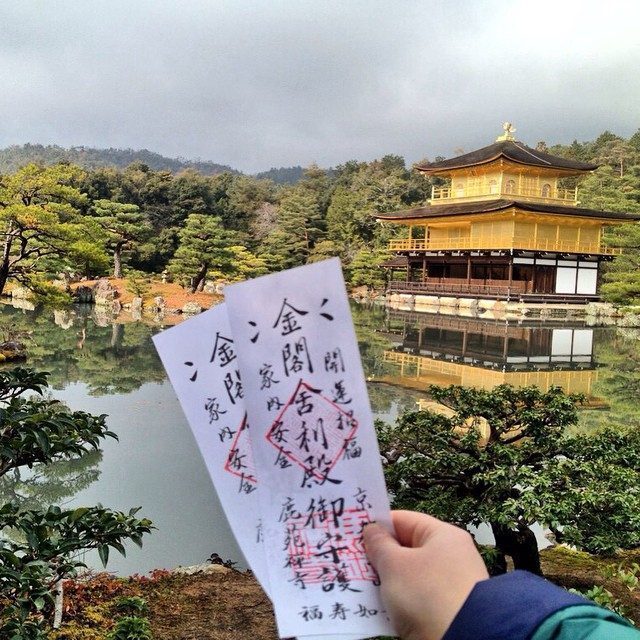 開運招福
金閣舎利殿御守護
家内安全
京
鹿苑禅寺
福寿如
金閣
家内安全